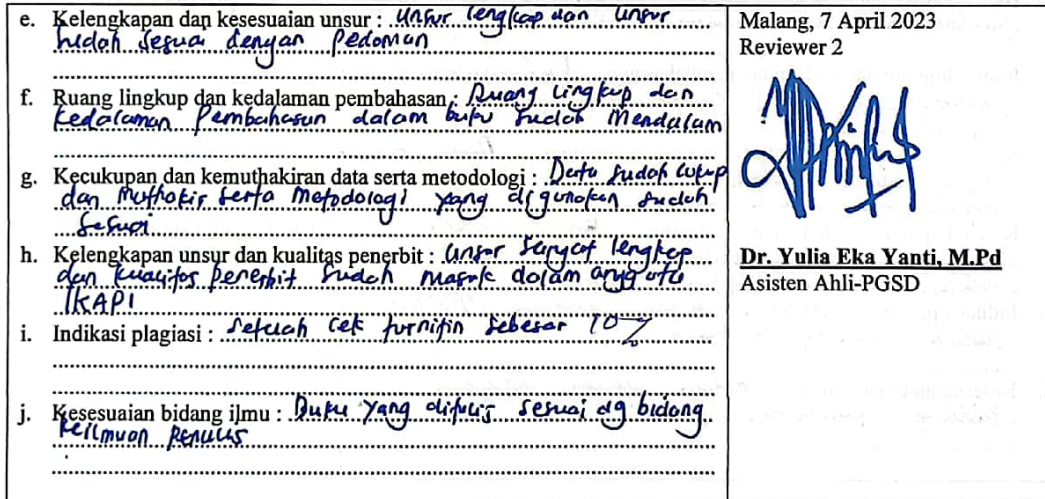 e. Kelengkapan dan kesesuaian unsur : Unsur lengkap dan unsur
sudah sesuai dengan pedoman
f. Ruang lingkup dan kedalaman pembahasan : Ruang lingkup dan
kedalaman pembahasan dalam buku sudah mendalam
g. Kecukupan dan kemuthakiran data serta metodologi : Data sudah cukup
dan muthakir serta metodologi yang digunakan sudah
sesuai
h. Kelengkapan unsur dan kualitas penerbit : Unsur sangat lengkap
dan kualitas penerbit sudah masuk dalam anggota
IKAPI
i. Indikasi plagiasi : Setelah cek turnitin sebesar 10%
j. Kesesuaian bidang ilmu : Buku yang ditulis sesuai dg bidang
keilmuan penulis
Malang, 7 April 2023
Reviewer 2
Dr. Yulia Eka Yanti, M.Pd
Asisten Ahli-PGSD